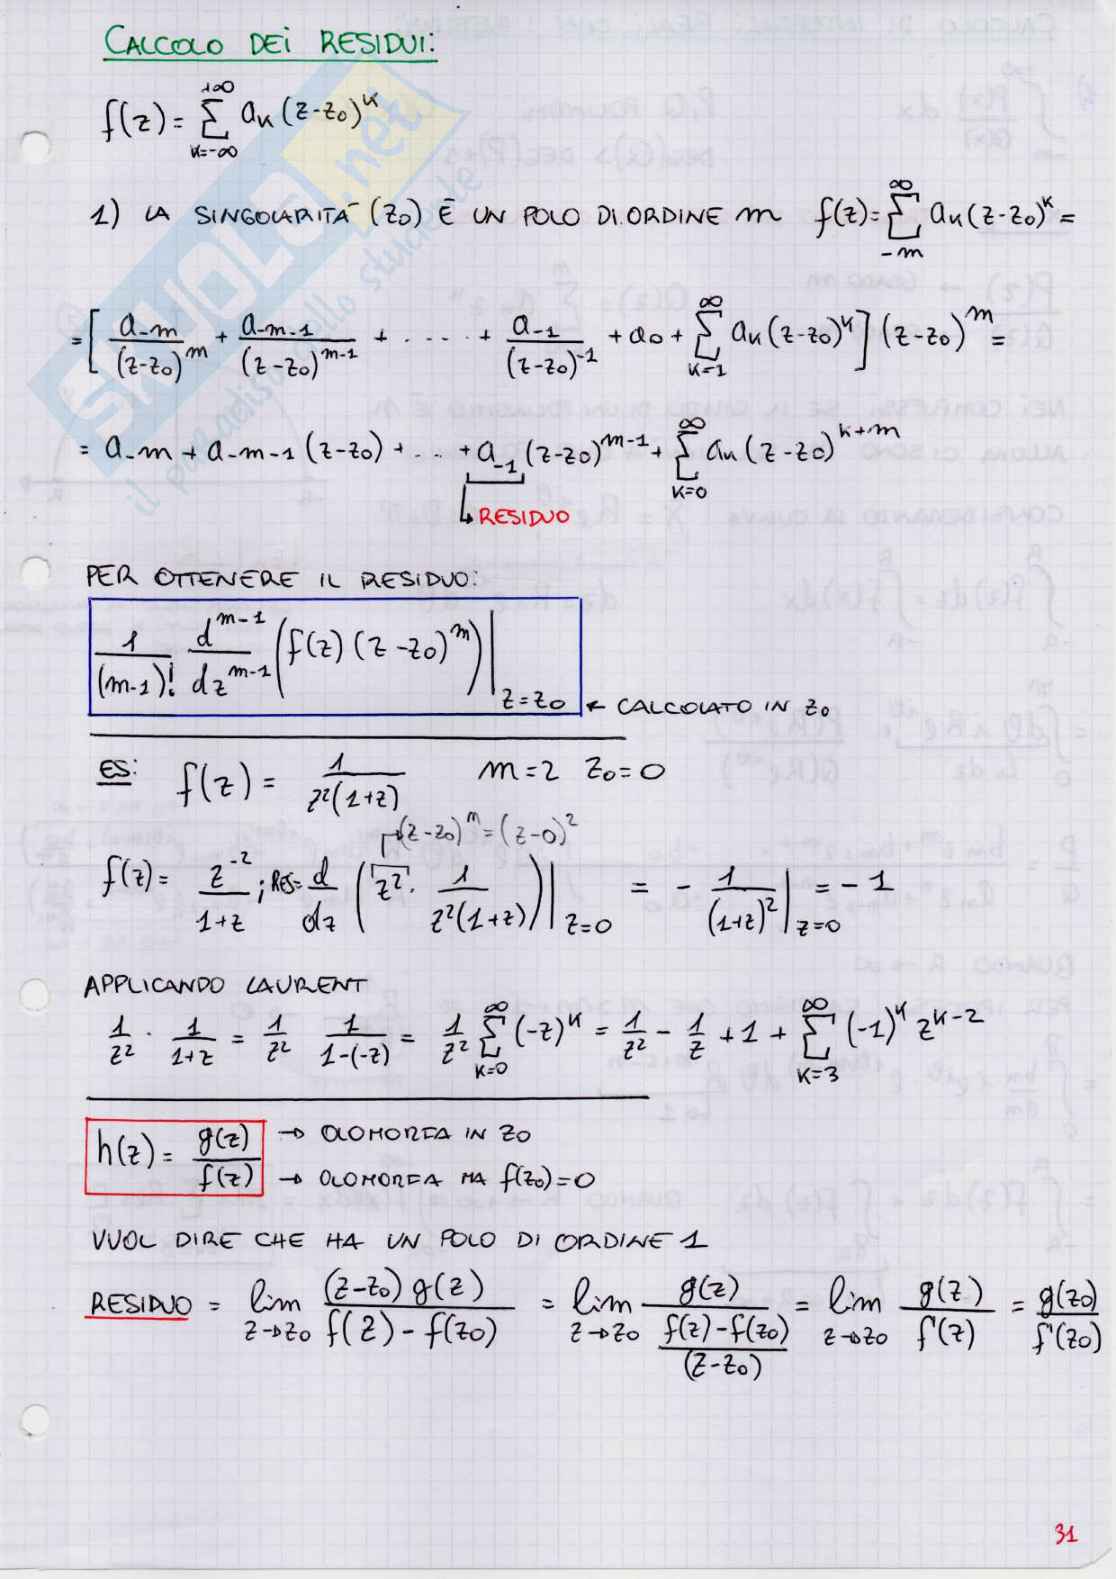 CALCOLO DEI RESIDUI:
f(z) = ∑_{k=-∞}^{+∞} a_k (z-z_0)^k
1) LA SINGOLARITÀ (z_0) È UN POLO DI ORDINE m f(z) = ∑_{-m}^{∞} a_k (z-z_0)^k =
= [ a_{-m}/(z-z_0)^m + a_{-m-1}/(z-z_0)^{m-1} + ..... + a_{-1}/(z-z_0)^{-1} + a_0 + ∑_{k=1}^{∞} a_k (z-z_0)^k ] (z-z_0)^m =
= a_{-m} + a_{-m-1} (z-z_0) + ... + a_{-1} (z-z_0)^{m-1} + ∑_{k=0}^{∞} a_k (z-z_0)^{k+m}
↳ RESIDUO
PER OTTENERE IL RESIDUO:
1/(m-1)! d^{m-1}/dz^{m-1} ( f(z) (z-z_0)^m ) |_{z=z_0} ← CALCOLATO IN z_0
ES: f(z) = 1/(z^2(1+z)) m=2 z_0=0
→ (z-z_0)^m = (z-0)^2
f(z) = z^{-2}/(1+z) ; RES = d/dz ( z^2 · 1/(z^2(1+z)) ) |_{z=0} = - 1/(1+z)^2 |_{z=0} = -1
APPLICANDO LAURENT
1/z^2 · 1/(1+z) = 1/z^2 1/(1-(-z)) = 1/z^2 ∑_{k=0}^{∞} (-z)^k = 1/z^2 - 1/z + 1 + ∑_{k=3}^{∞} (-1)^k z^{k-2}
h(z) = g(z)/f(z) → OLOMORFA IN z_0
→ OLOMORFA MA f(z_0)=0
VUOL DIRE CHE HA UN POLO DI ORDINE 1
RESIDUO = lim_{z→z_0} (z-z_0) g(z)/(f(z)-f(z_0)) = lim_{z→z_0} g(z)/((f(z)-f(z_0))/(z-z_0)) = lim_{z→z_0} g(z)/f'(z) = g(z_0)/f'(z_0)
31
SKUOLA.net
il paradiso dello studente